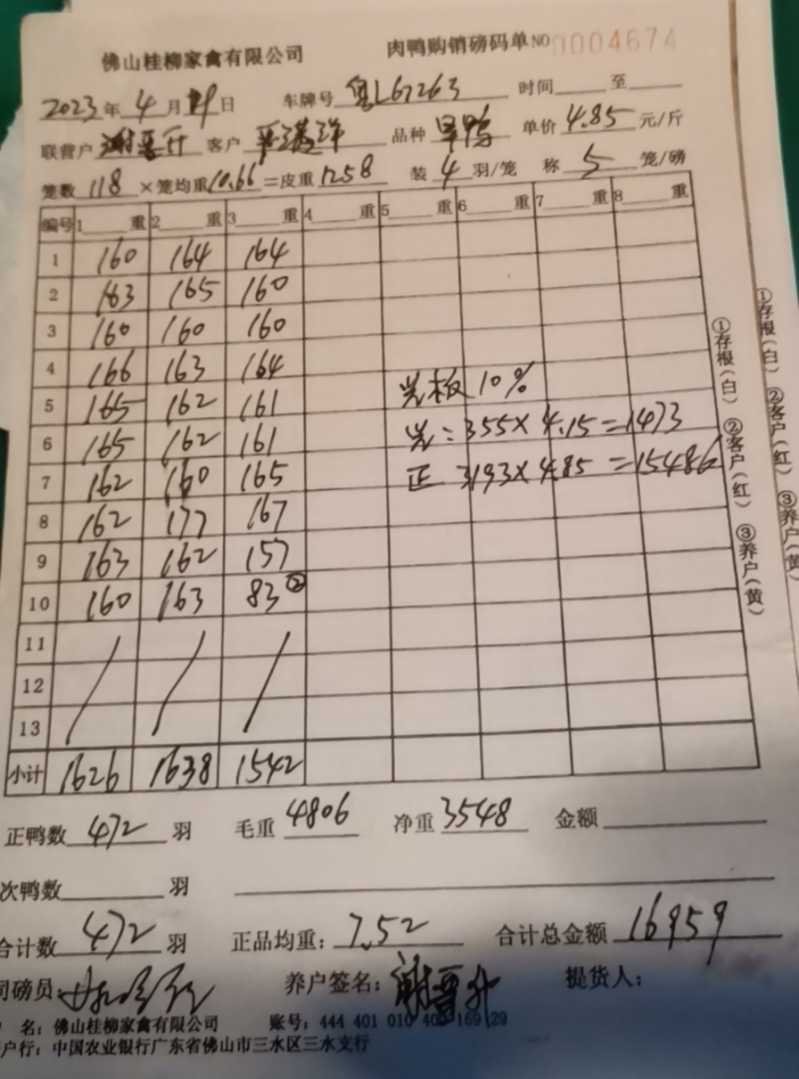 佛山桂柳家禽有限公司 肉鸭购销磅码单 NO 0004674
2023年4月19日 车牌号 粤L67263 时间 至
联营户 谢晋升 客户 品种 单价 4.85 元/斤
笼数 118 ×笼均重 10.66 =皮重 1258 装 4 羽/笼 称 5 笼/磅
编号 1 重 2 重 3 重 4 重 5 重 6 重 7 重 8 重
1 160 164 164
2 163 165 160
3 160 160 160
4 166 163 164
5 165 162 161
光板10%
6 165 162 161
光:355×4.15=1473
7 162 160 165
正 3193×4.85=15486
8 162 177 167
9 163 162 157
10 160 163 83②
11
12
13
小计 1626 1638 1542
正鸭数 472 羽 毛重 4806 净重 3548 金额
次鸭数 羽
合计数 472 羽 正品均重: 7.52 合计总金额 16959
司磅员: 养户签名: 谢晋升 提货人:
名: 佛山桂柳家禽有限公司 账号: 444 401 010 400 169 29
户行: 中国农业银行广东省佛山市三水区三水支行
①存根(白) ②客户(红) ③养户(黄)
①存根(白) ②客户(红) ③养户(黄)